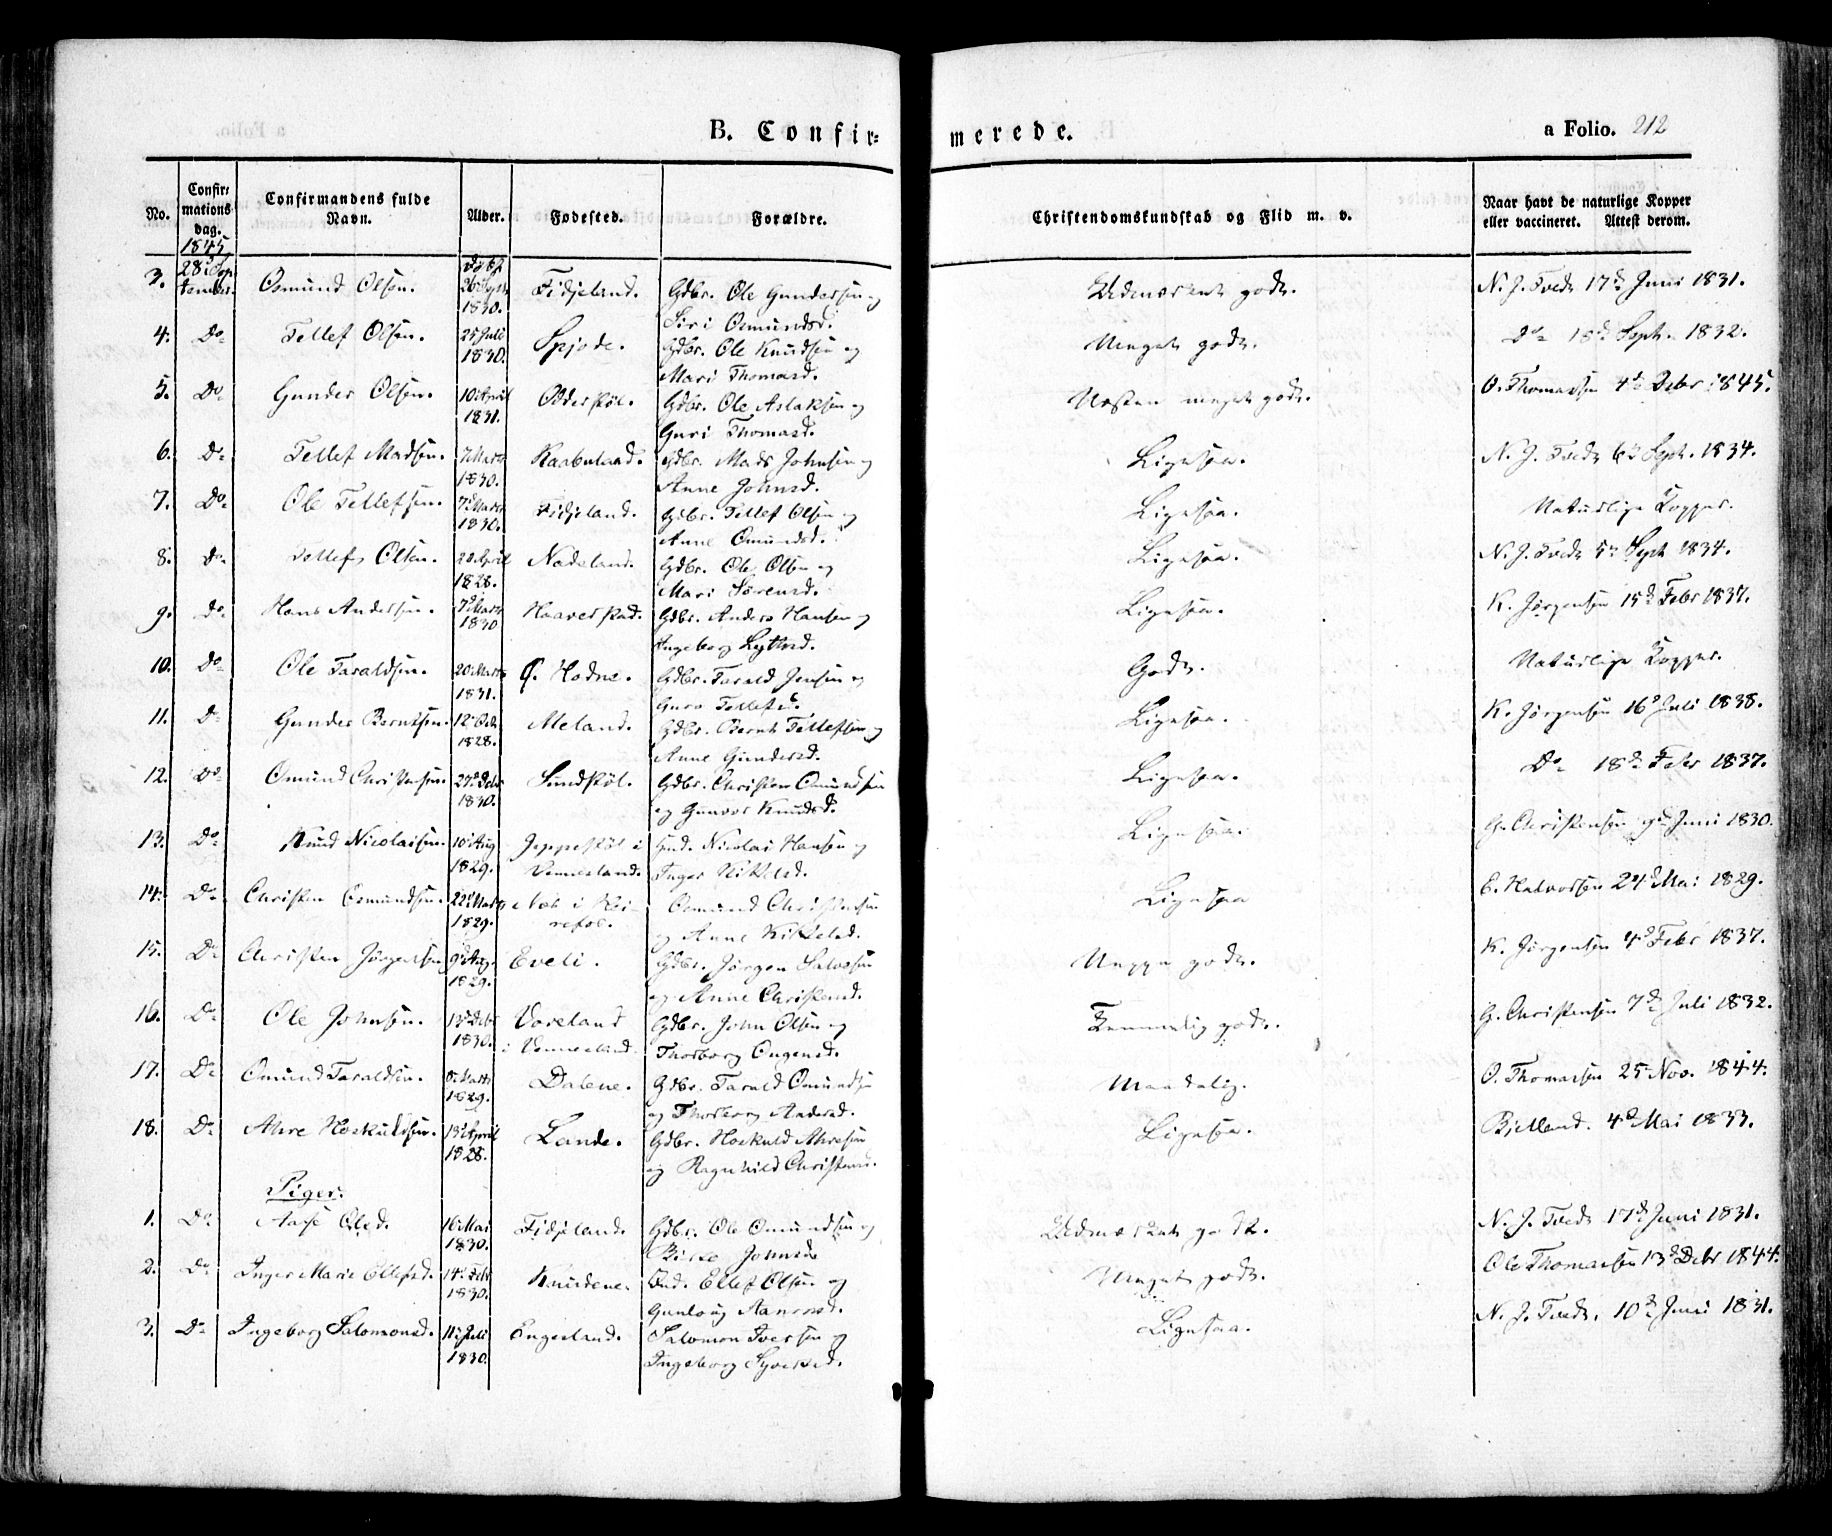 B. Confir- merede.
a Folio. 212
No.
Confir-
mations
dag.
Confirmandens fulde
Navn.
Alder.
Fødested.
Forældre.
Christendomskundskab og Flid m. v.
Naar havt de naturlige Kopper
eller vaccineret. Attest derom.
1845
3. 28 Sep- Osmund Olsen. 26 Sept Fidjeland. Gdbr. Ole Gundersen og Udmærket godt. N. J. Tvedt 17d Juni 1831.
tember. 1830. Siri Osmundsd.
4. Do Tellef Olsen. 25 Juli Gdbr. Ole Knudsen og Meget godt. Do 18d Sept. 1832.
1830. Mari Thomasd.
5. Do Gunder Olsen. 10 April Odderstøl. Gdbr. Ole Aslaksen og Næsten meget godt. O. Thomassen 4d Debr 1845.
1831. Guri Thomasd.
6. Do Tellef Madsen. 7 Marts Gdbr. Mads Johnsen og Ligesaa. N. J. Tvedt 6d Sept. 1834.
1830. Anne Johnsd.
7. Do Ole Tellefsen. 7 Marts Fidjeland. Gdbr. Tellef Olsen og Ligesaa. Naturlige Kopper.
1830. Anne Omundsd.
8. Do Tellef Olsen. April Nadeland. Gdbr. Ole Olsen og Ligesaa. N. J. Tvedt 5d Sept 1834.
1828. Mari Sørensd.
9. Do Hans Andersen. 7 Marts Haaverstad. Gdbr. Anders Hansen og Ligesaa. K. Jørgensen 15d Febr 1837.
1830 Ingeborg
10. Do Ole Taraldsen. 20 Marts Ø. Hodne. Gdbr. Tarald Jensen og Godt. Naturlige Kopper.
1831. Guro Tellefsd.
11. Do Gunder Berntsen. 12 Meland. Gdbr. Bernt Tellefsen og Ligesaa. K. Jørgensen 16d Juli 1838.
1828. Anne Gundersd.
12. Do Omund Christensen. 27 Debr Gdbr. Christen Omundsen Ligesaa. Do 18d Febr 1837.
1830. og Gunvor Knudsd.
13. Do Knud Nicolaisen. 10 Aug Jeppestøl i Nicolai Hansen og Ligesaa. G. Christensen 9d Juni 1830.
1829. Vennesland. Inger
14. Do Christen Osmundsen. 22 Marts Osmund Christensen Ligesaa E. Halvorsen 24d Mai 1829.
1829. og Anne
15. Do Christen Jørgensen 9 Aug. Eveli. Gdbr. Jørgen Salvesen godt. K. Jørgensen 4d Febr 1837.
1829. og Anne Christensd.
16. Do Ole Johnsen. 13 Debr Voreland Gdbr. John Olsen og Temmelig godt. G. Christensen 7d Juli 1832.
1830. i Vennesland. Thorborg
17. Do Omund Taraldsen. Marts Dalene. Gdbr. Tarald Omundsen Maadelig. O. Thomassen 25 Nov. 1844.
1829. og Thorborg Andersd.
18. Do Ahre Hoskuldsen. 13 April Lande. Gdbr. Hoskuld Ahresen Ligesaa. Bjelland. 4d Mai 1833.
1828. og Ragnhild Christensd.
Piger.
1. Do Aase Olsd. 16 Mai Fidjeland. Gdbr. Ole Omundsen og Udmærket godt. N. J. Tvedt 17d Juni 1831.
1830. Johnsd.
2. Do Inger Marie Ellefsd. 14 Febr Knudene. Ellef Olsen og Meget godt. Ole Thomassen 13d Debr 1844.
1830. Gunloug Aanonsd.
3. Do Ingeborg Salomonsd. 11 Juli Engesland. Salomon Iversen og Ligesaa. N. J. Tvedt. 10d Juni 1831.
1830. Ingeborg Syvertsd.